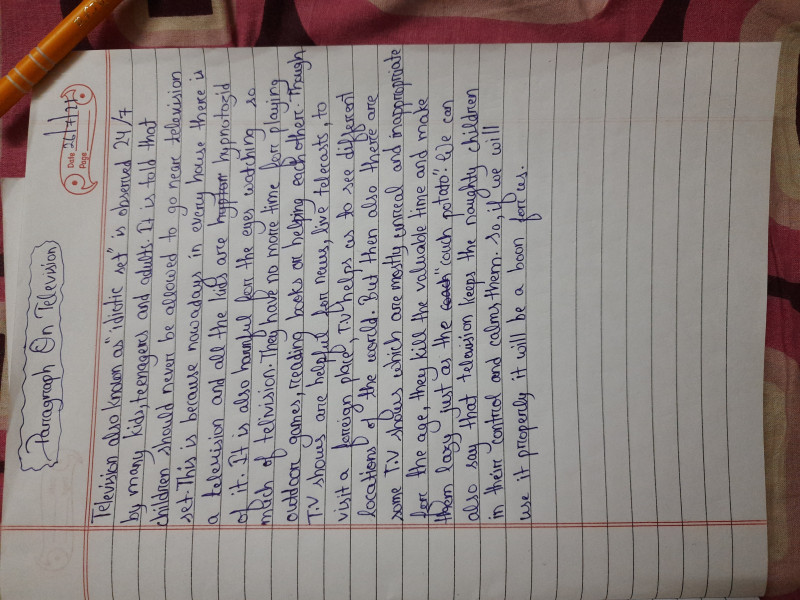 Date 26/7/21
Page
Paragraph On Television
Television also known as "idiotic set" is observed 24/7
by many kids, teenagers and adults. It is told that
children should never be allowed to go near television
set. This is because nowadays in every house there is
a television and all the kids are hypnotozid
of it. It is also harmful for the eyes watching so
much of telivision. They have no more time for playing
outdoor games, reading books or helping each other. Though
T.V shows are helpful for news, live telecasts, to
visit a foreign place, T.V helps as to see different
locations of the world. But then also there are
some T.V shows which are mostly unreal and inappropriate
for the age, they kill the valuable time and make
them lazy just as the "couch potato". We can
also say that television keeps the naughty children
in their control and calms them. So, if we will
use it properly it will be a boon for us.